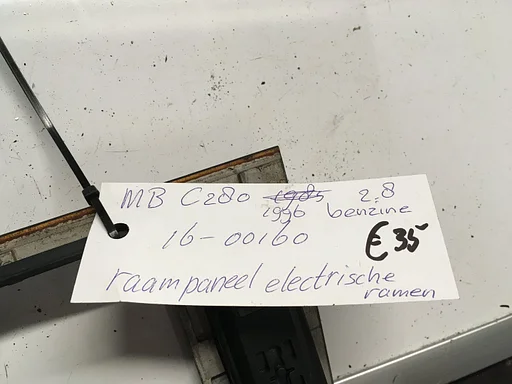 MB C280 1985 2.8
1996 benzine
16-00160 € 35
raampaneel electrische
ramen